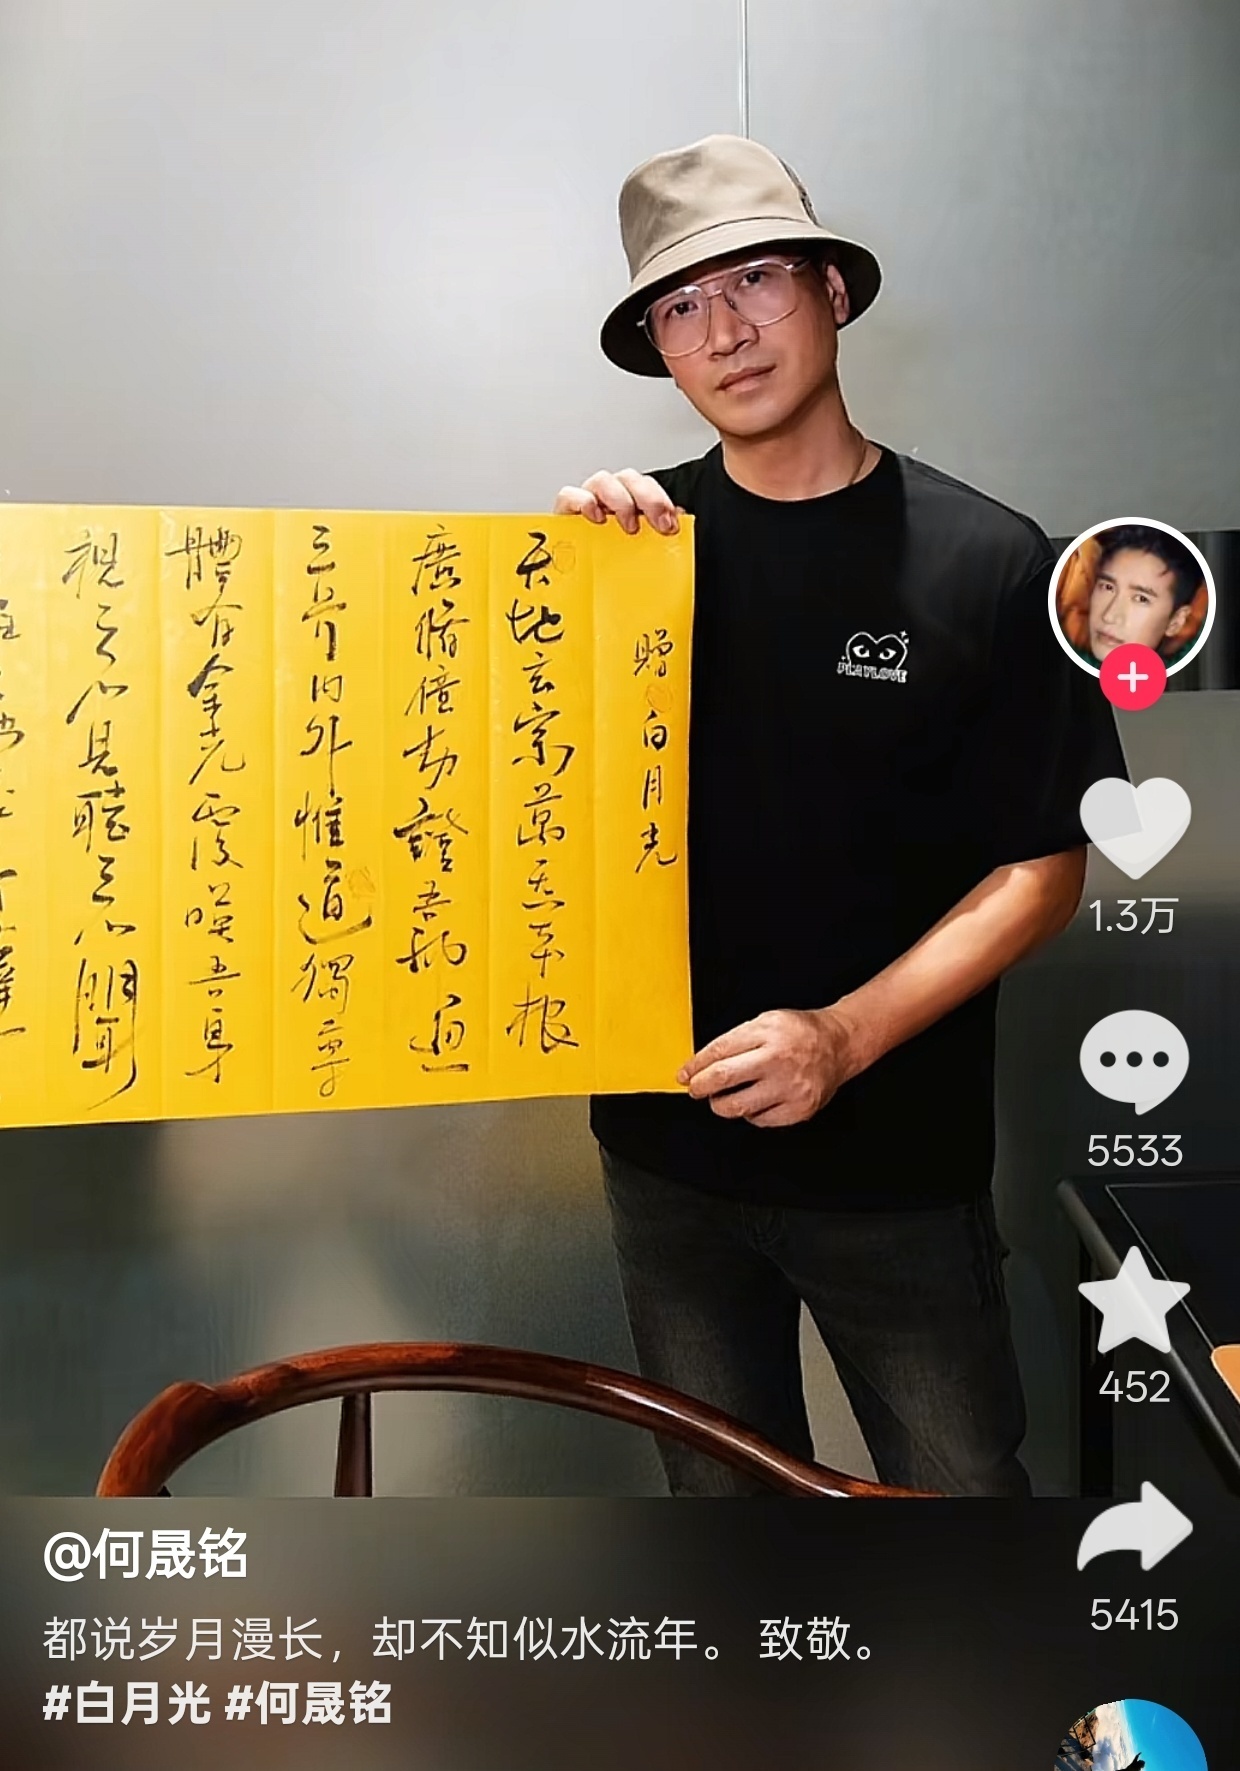 贈白月光
天地玄宗萬炁本根
廣脩億劫證吾神通
三界内外惟道獨尊
體有金光覆暎吾身
視之不見聽之不聞
PLAYLOVE
1.3万
5533
452
5415
@何晟铭
都说岁月漫长，却不知似水流年。 致敬。
#白月光 #何晟铭